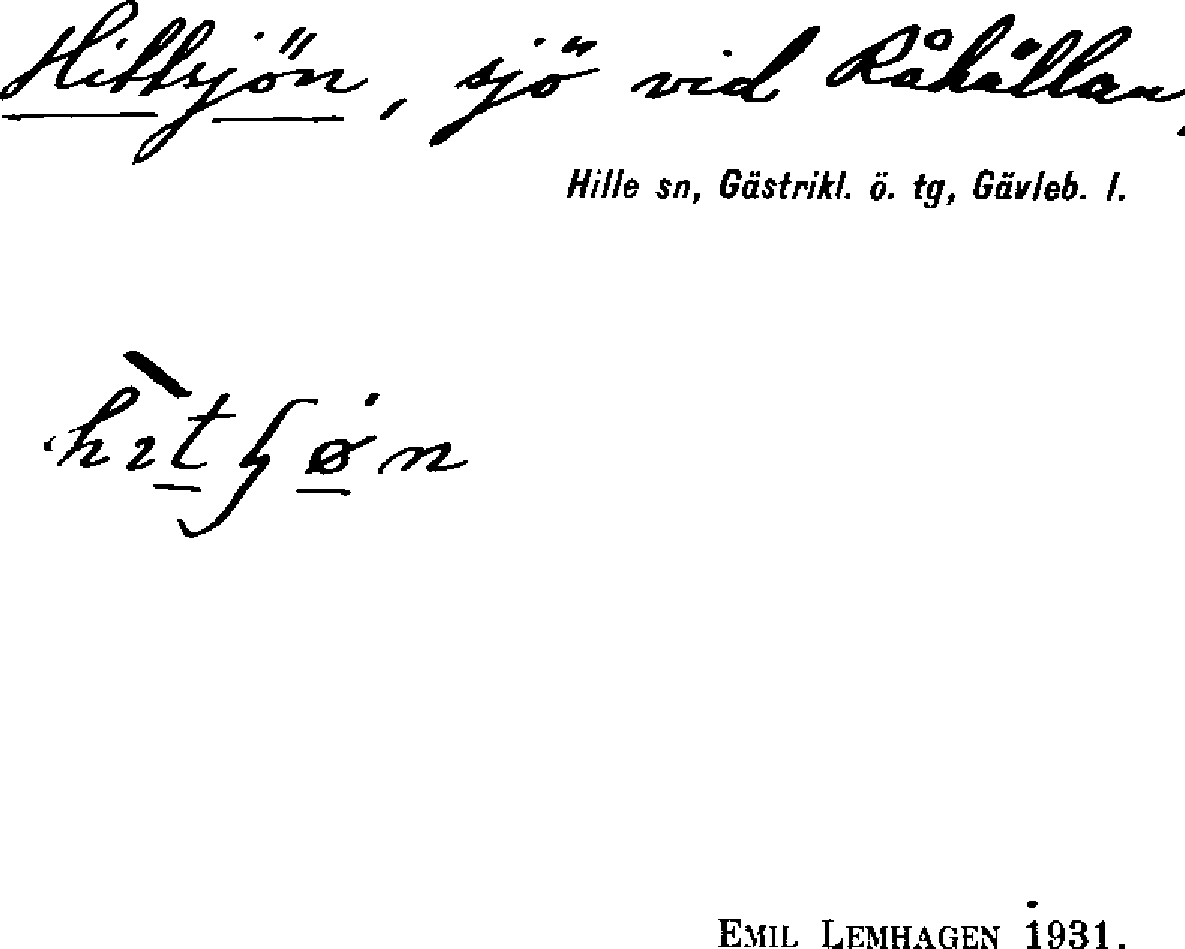 Hittsjön, sjö vid Råhällan,
Hille sn, Gästrikl. ö. tg, Gävleb. l.
EMIL LEMHAGEN 1931.